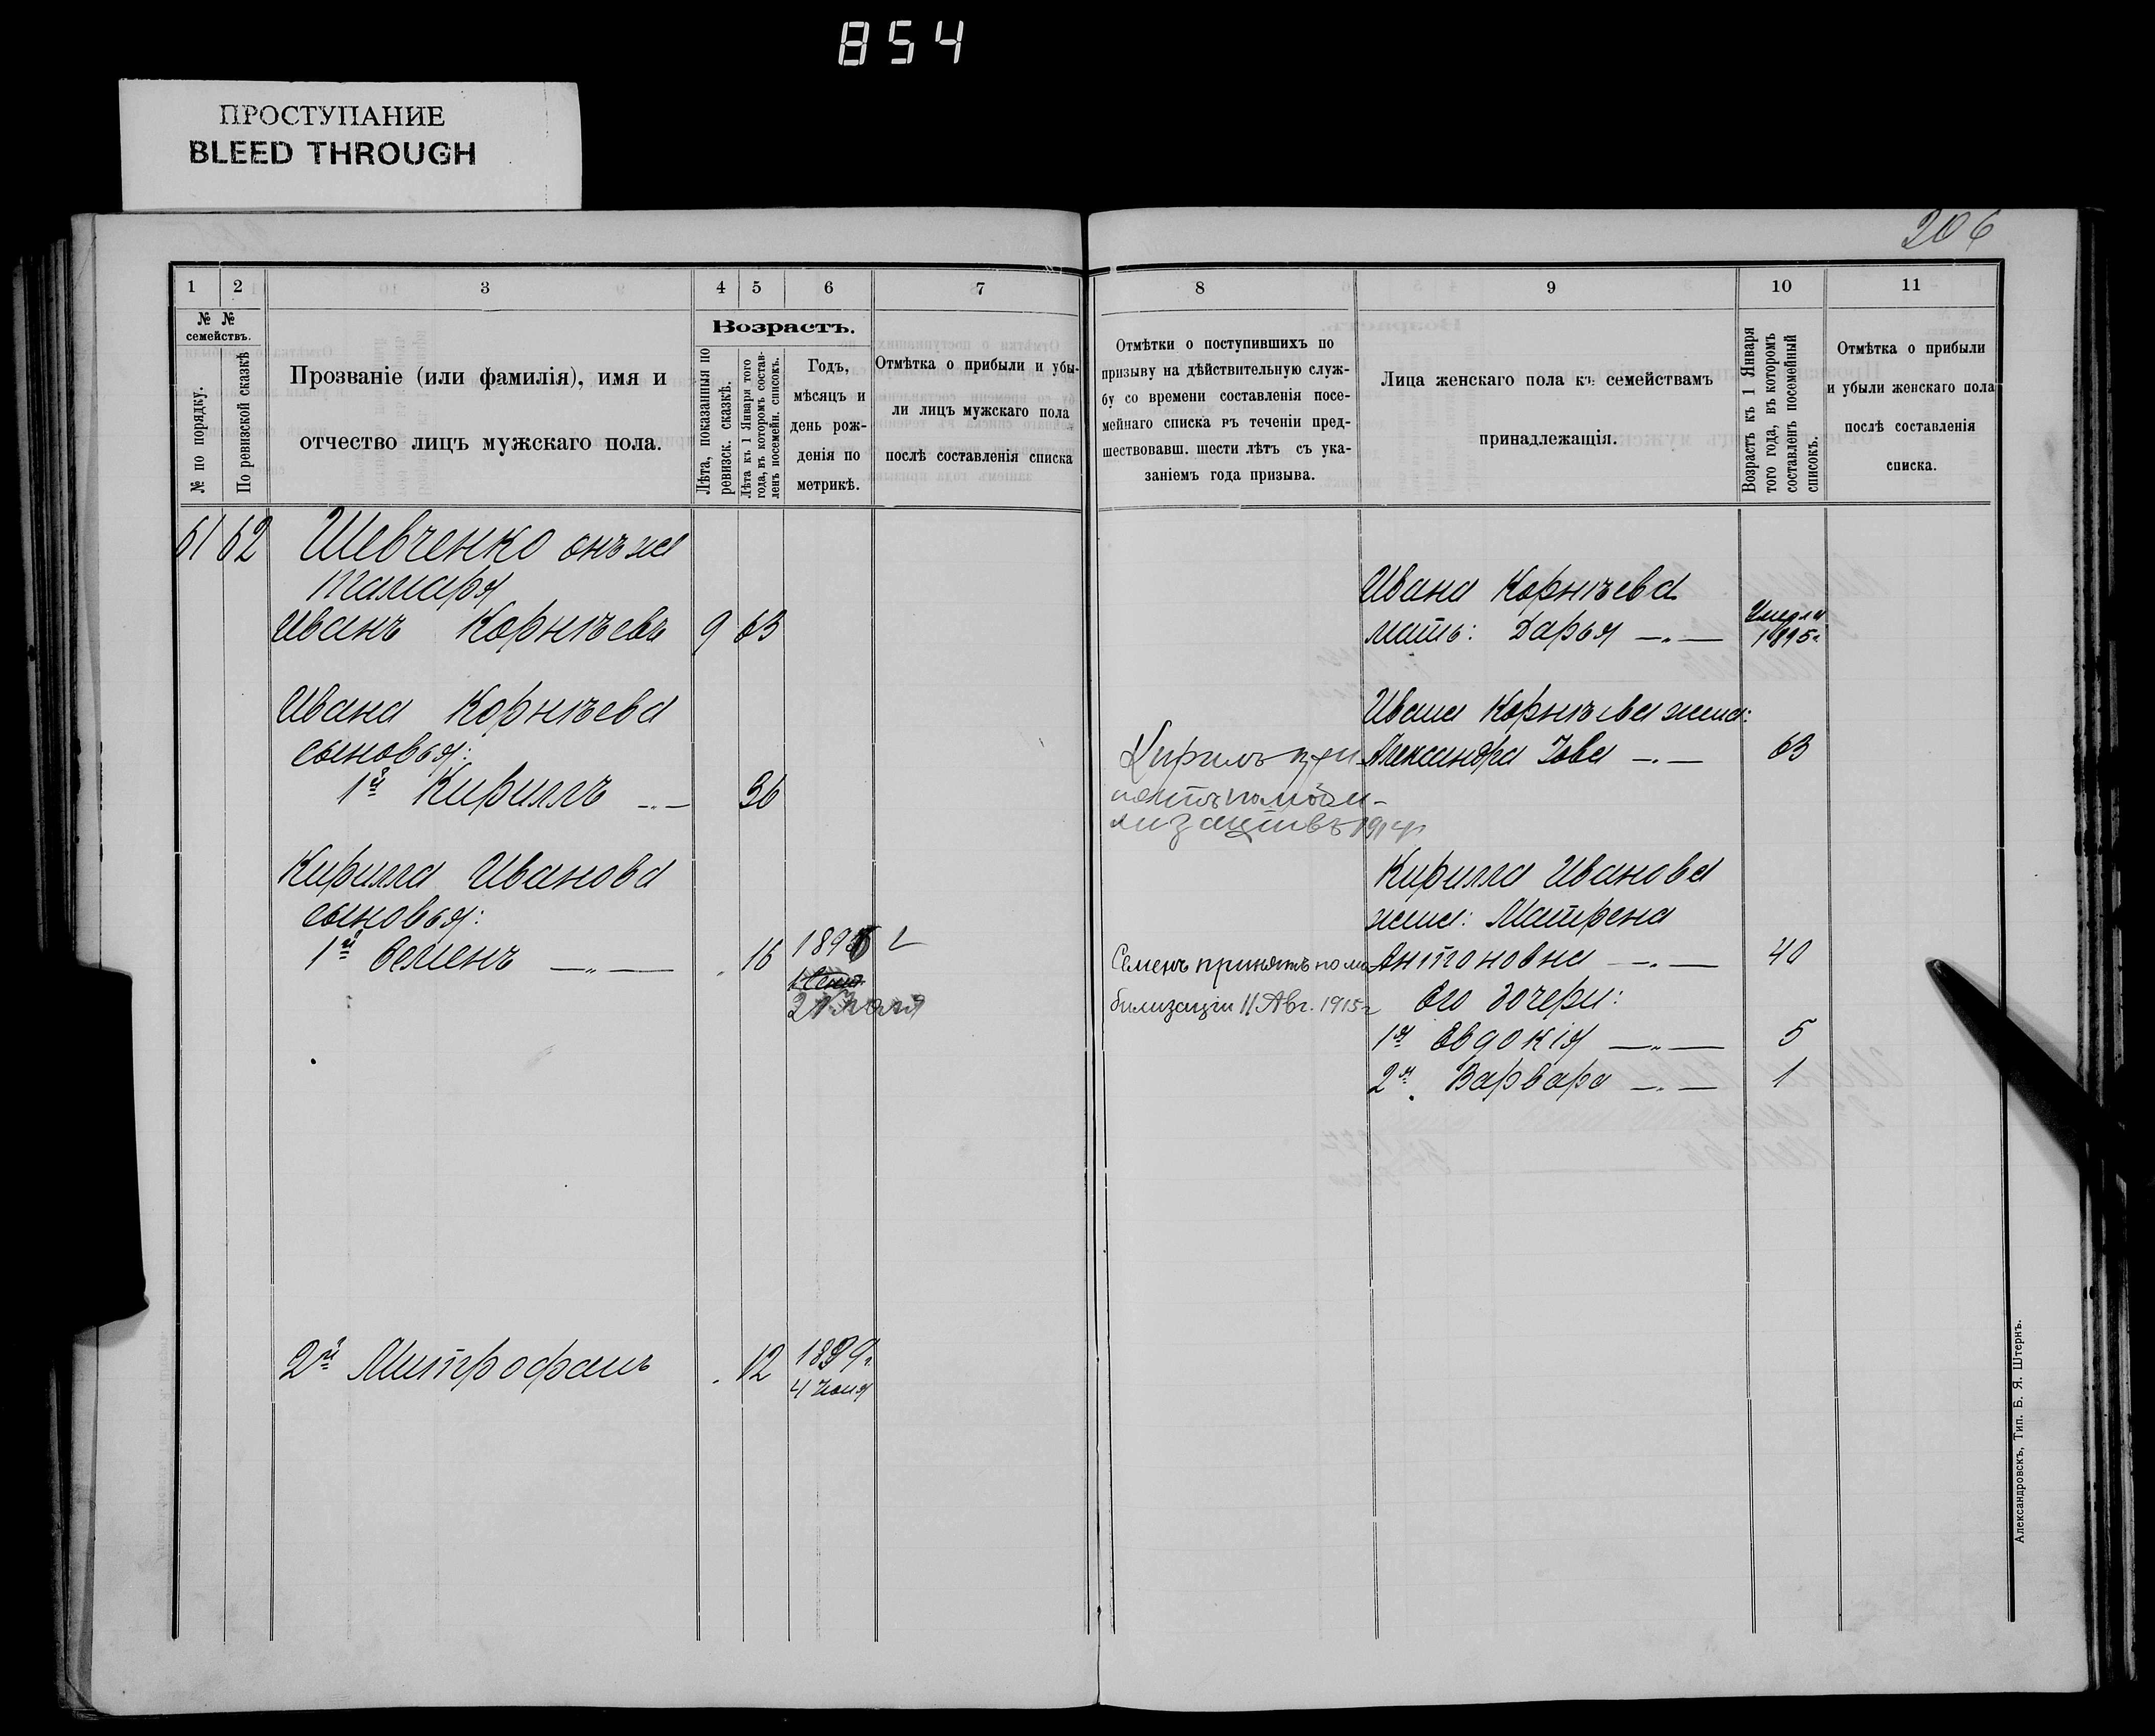 854
ПРОСТУПАНИЕ
BLEED THROUGH
206
1 2 3 4 5 6 7
№ №
семействъ.
№ по порядку.
По ревизской сказкѣ
Прозваніе (или фамилія), имя и
отчество лицъ мужскаго пола.
Возрастъ.
Лѣта, показанныя по
ревизск. сказкѣ.
Лѣта къ 1 Января того
года, въ которомъ состав-
ленъ посемейн. списокъ.
Годъ,
мѣсяцъ и
день рож-
денія по
метрикѣ.
Отмѣтка о прибыли и убы-
ли лицъ мужскаго пола
послѣ составленія списка
61 62 Шевченко онъ же
Иванъ Корнѣевъ 9 63
Ивана Корнѣева
сыновья:
1й Кириллъ —„— 36
Кирилла Иванова
сыновья:
1й Семенъ —„— 16 1896
2й Митрофанъ 12 1899г.
4 Іюня
8 9 10 11
Отмѣтки о поступившихъ по
призыву на дѣйствительную служ-
бу со времени составленія посе-
мейнаго списка въ теченіи пред-
шествовавш. шести лѣтъ съ ука-
заніемъ года призыва.
Лица женскаго пола къ семействамъ
принадлежащія.
Возрастъ къ 1 Января
того года, въ которомъ
составленъ посемейный
списокъ.
Отмѣтка о прибыли
и убыли женскаго пола
послѣ составленія
списка.
Ивана Корнѣева
мать: Дарья —„— Умерла
1895г.
Ивана Корнѣева жена:
Александра Іова —„— 63
Кирилъ при-
нятъ по моби-
лизаціи въ 1914г
Кирилла Иванова
жена: Матрена
Антоновна —„— 40
Семенъ принятъ по мо-
билизаціи 11 Авг. 1915г
Его дочери:
1я Евдокія —„— 5
2я Варвара —„— 1
Александровскъ, Тип. Б. Я. Штернъ.